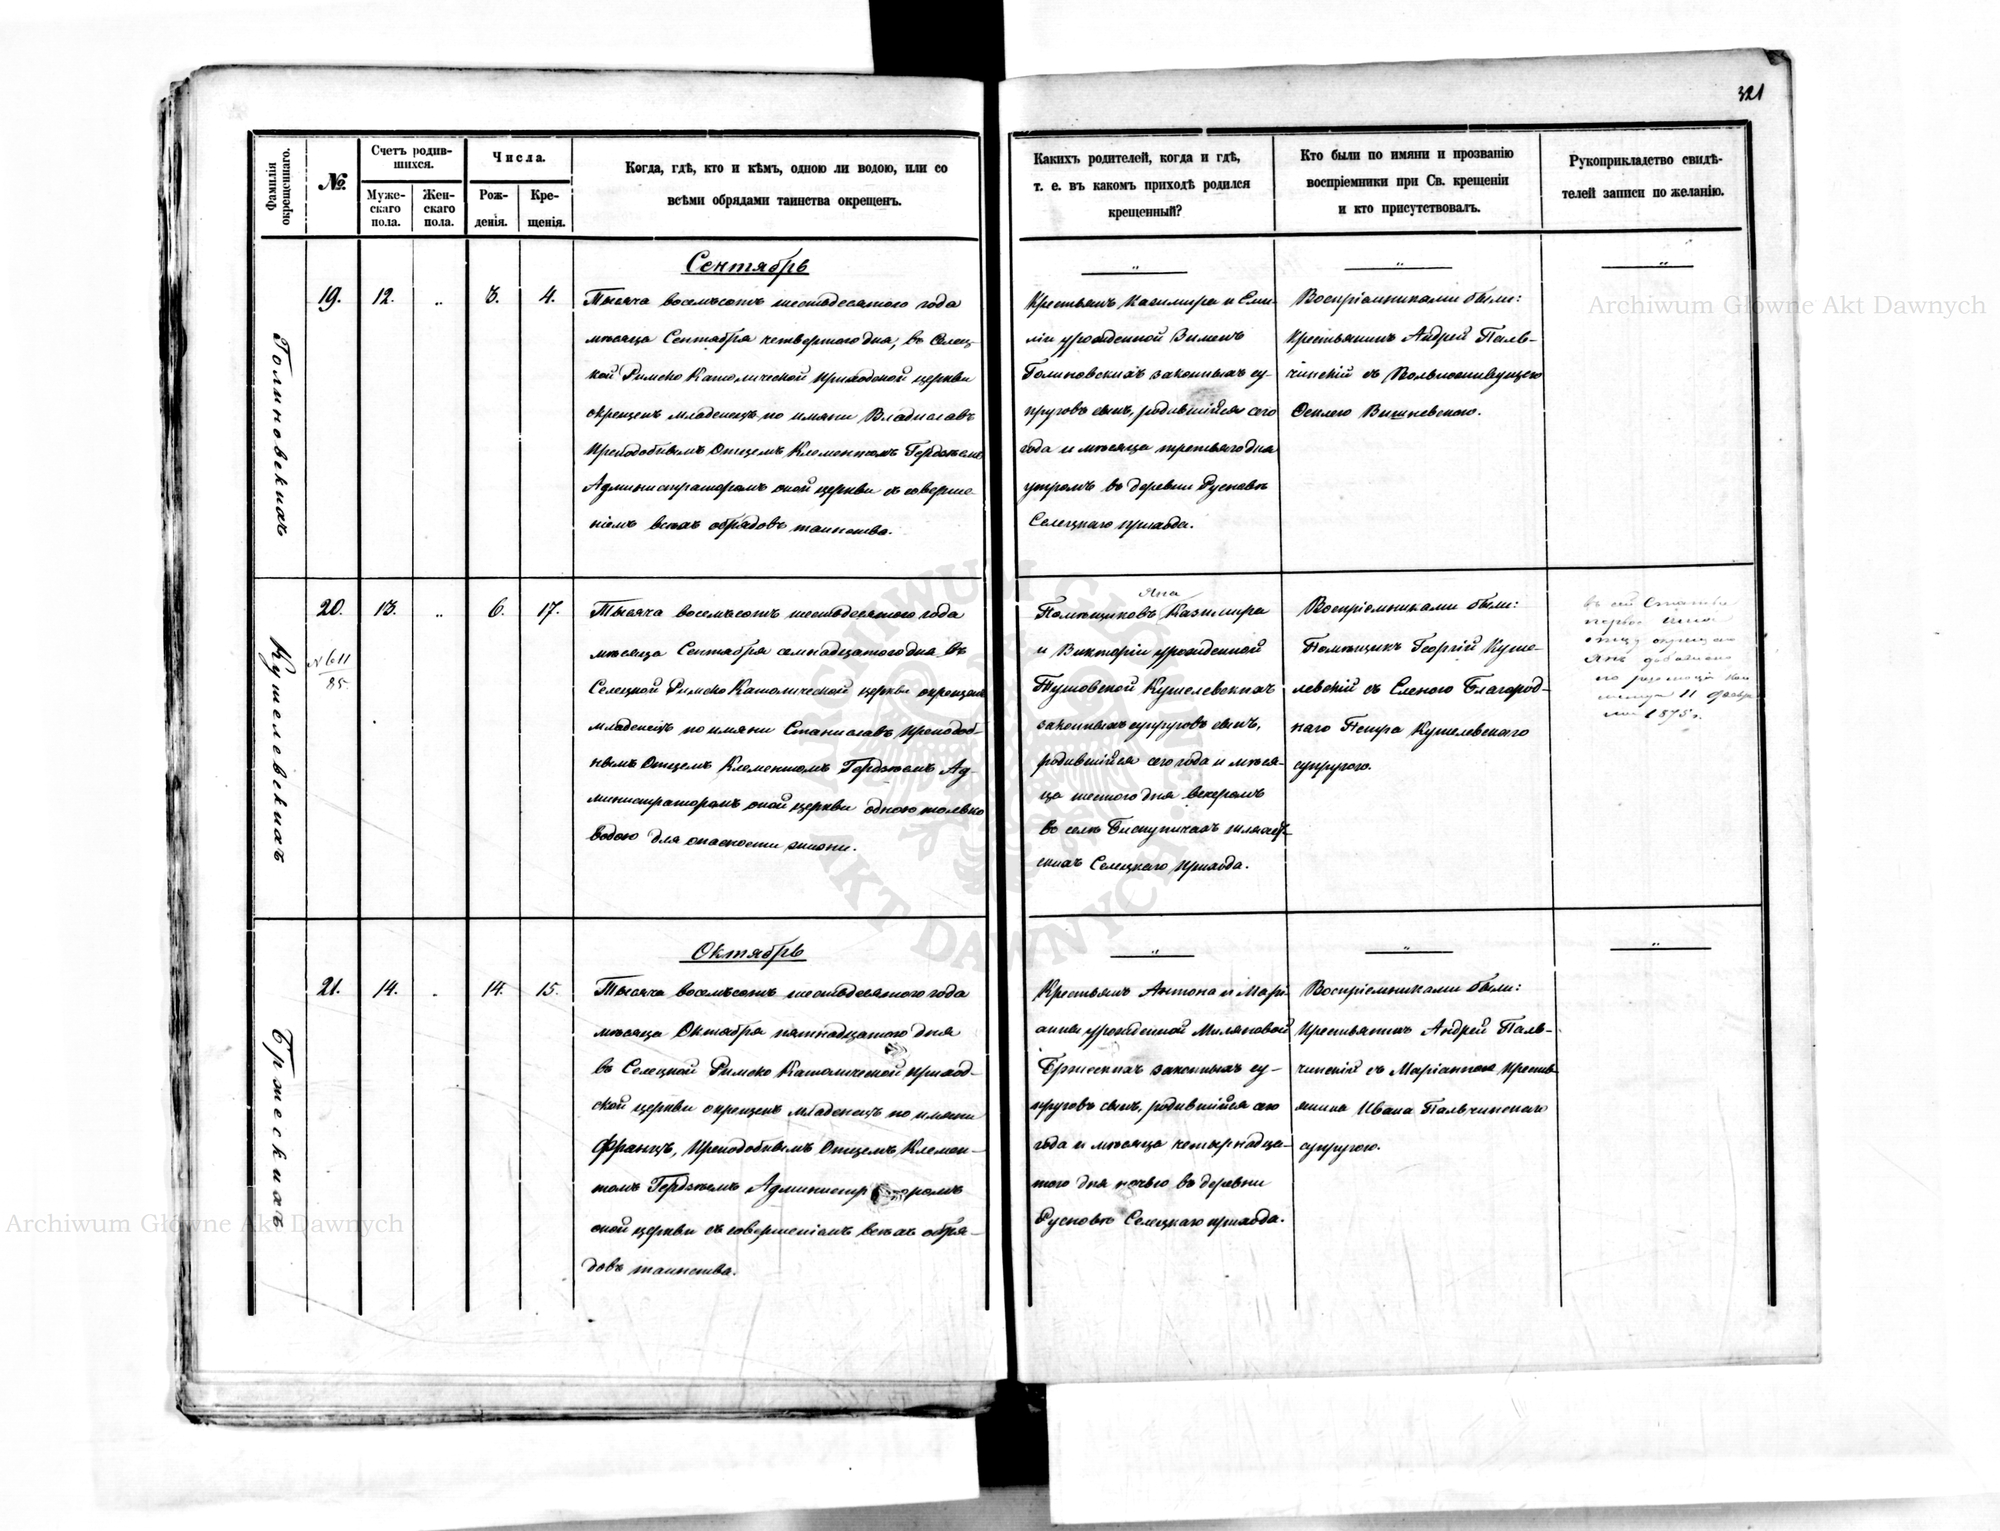 321
Фамилія
окрещеннаго.
№.
Счетъ родив-
шихся.
Муже-
скаго
пола.
Жен-
скаго
пола.
Числа.
Рож-
денія.
Кре-
щенія.
Когда, гдѣ, кто и кѣмъ, одною ли водою, или со
всѣми обрядами таинства окрещенъ.
Какихъ родителей, когда и гдѣ,
т. е. въ какомъ приходѣ родился
крещенный?
Кто были по имяни и прозванію
воспріемники при Св. крещеніи
и кто присутствовалъ.
Рукоприкладство свидѣ-
телей записи по желанію.
Сентябрь
Голиновскихъ
19.
12.
„
3.
4.
Тысяча восемьсотъ шестьдесятого года
мѣсяца Сентября четвертого дня, въ Селец-
кой Римско Католической приходской церкви
окрещенъ младенецъ по имяни Владиславъ
Преподобнымъ Отцемъ Клементомъ
Администраторомъ оной церкви съ соверше-
ніемъ всѣхъ обрядовъ таинства.
Крестьянъ Казимира и Еми-
ліи урожденной Зименъ
Голиновскихъ законныхъ су-
пруговъ сынъ, родившійся сего
года и мѣсяца третьяго дня
утромъ въ деревни Русновѣ
Селецкаго прихода.
Воспріемниками были:
Крестьянинъ Андрей Паль-
чинскій съ
Вишневскаго.
Кушелевскихъ
20.
N 611
85.
13.
„
6.
17.
Тысяча восемьсотъ шестьдесятого года
мѣсяца Сентября семнадцатого дня въ
Селецкой Римско Католической церкви окрещенъ
младенецъ по имяни Станиславъ Преподоб-
нымъ Отцемъ Клементомъ Ад-
министраторомъ оной церкви одною только
водою для опасности жизни.
Яна
Помѣщиковъ Казимира
и Викторіи урожденной
Кушелевскихъ
законныхъ супруговъ сынъ,
родившійся сего года и мѣся-
ца шестого дня вечеромъ
въ селѣ Бискупичахъ шляхет-
скихъ Селецкаго прихода.
Воспріемниками были:
Помѣщикъ Георгій Куше-
левскій съ Еленою Благород-
наго Петра Кушелевскаго
супругою.
въ сей
первое имя
отцу
Янъ добавлено
по резолюціи
11
1875 г.
Октябрь
Бржескихъ
21.
14.
„
14.
15.
Тысяча восемьсотъ шестьдесятого года
мѣсяца Октября пятнадцатого дня
въ Селецкой Римско Католической приход-
ской церкви окрещенъ младенецъ по имяни
Францъ, Преподобнымъ Отцемъ Клемен-
томъ
оной церкви съ совершеніемъ всѣхъ обря-
довъ таинства.
Крестьянъ Антона и Марі-
анны урожденной Миляновой
Бржескихъ законныхъ су-
пруговъ сынъ, родившійся сего
года и мѣсяца четырнадца-
того дня ночью въ деревни
Русновѣ Селецкаго прихода.
Воспріемниками были:
Крестьянинъ Андрей Паль-
чинскій съ Маріанною Кресть-
янина Ивана Пальчинскаго
супругою.
Archiwum Główne Akt Dawnych
Archiwum Główne Akt Dawnych
ARCHIWUM GŁÓWNE
AKT DAWNYCH